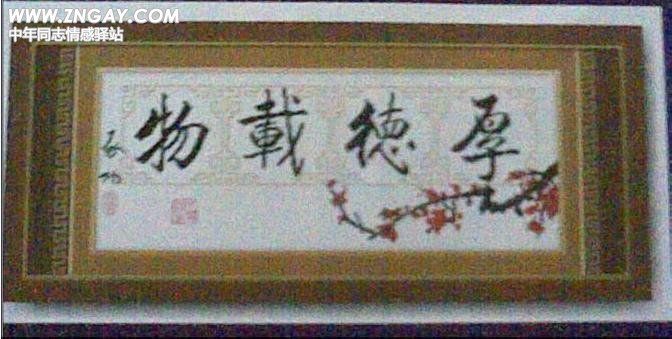 WWW.ZNGAY.COM
中年同志情感驿站
厚德載物
启功